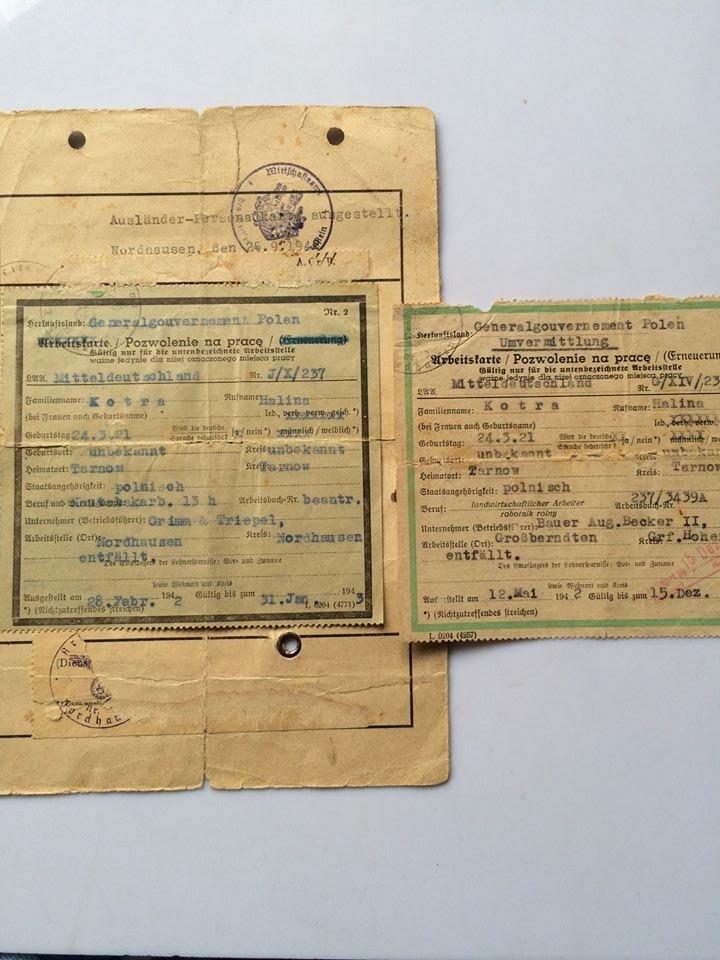 Wirtschaftsamt
Ausländer-Personalkarte ausgestellt.
Nordhausen, den 26.9.194
Nr. 2
Herkunftsland: Generalgouvernement Polen
Arbeitskarte / Pozwolenie na pracę / (Erneuerung)
Gültig nur für die untenbezeichnete Arbeitsstelle
ważne jedynie dla niżej oznaczonego miejsca pracy
LAA. Mitteldeutschland Nr. J/X/237
Familienname: Kotra Rufname: Halina
(bei Frauen auch Geburtsname) led., verh., verw., gesch. *)
Geburtstag 24.3.21 Wird die deutsche Sprache beherrscht? ja / nein *) männlich / weiblich *)
Geburtsort: unbekannt Kreis: unbekannt
Heimatort: Tarnow Kreis: Tarnow
Staatsangehörigkeit: polnisch
Beruf und 13 h Arbeitsbuch-Nr. beantr.
Unternehmer (Betriebsführer): Grimm & Triepel,
Arbeitsstelle (Ort): Nordhausen Kreis: Nordhausen
entfällt.
Des Empfängers der Lohnersparnisse: Vor- und Zuname
sowie Wohnort und Kreis
Ausgestellt am 28. Febr. 1942 Gültig bis zum 31. Jan 1943
*) (Nichtzutreffendes streichen) L 0204 (4771)
(Diens
Nordhau
Herkunftsland: Generalgouvernement Polen
Umvermittlung
Arbeitskarte / Pozwolenie na pracę / (Erneuerun
Gültig nur für die untenbezeichnete Arbeitsstelle
ważne jedynie dla niżej oznaczonego miejsca pracy
LAA. Mitteldeutschland Nr. G/XIV/23
Familienname: Kotra Rufname: Halina
(bei Frauen auch Geburtsname) led., verh., verw.,
Geburtstag: 24.3.21 Wird die deutsche Sprache beherrscht? ja / nein *) männlich / we
Geburtsort: unbekannt Kreis: unbekann
Heimatort: Tarnow Kreis: Tarnow
Staatsangehörigkeit: polnisch
Beruf: landwirtschaftlicher Arbeiter
robotnik rolny Arbeitsbuch-Nr. 237/3439A
Unternehmer (Betriebsführer): Bauer Aug. Becker II,
Arbeitsstelle (Ort): Großberndten Kreis: Grf. Hohe
entfällt.
Des Empfängers der Lohnersparnisse: Vor- und Zuname
sowie Wohnort und Kreis
Ausgestellt am 12. Mai 1942 Gültig bis zum 15. Dez.
*) (Nichtzutreffendes streichen)
L 0204 (4257)